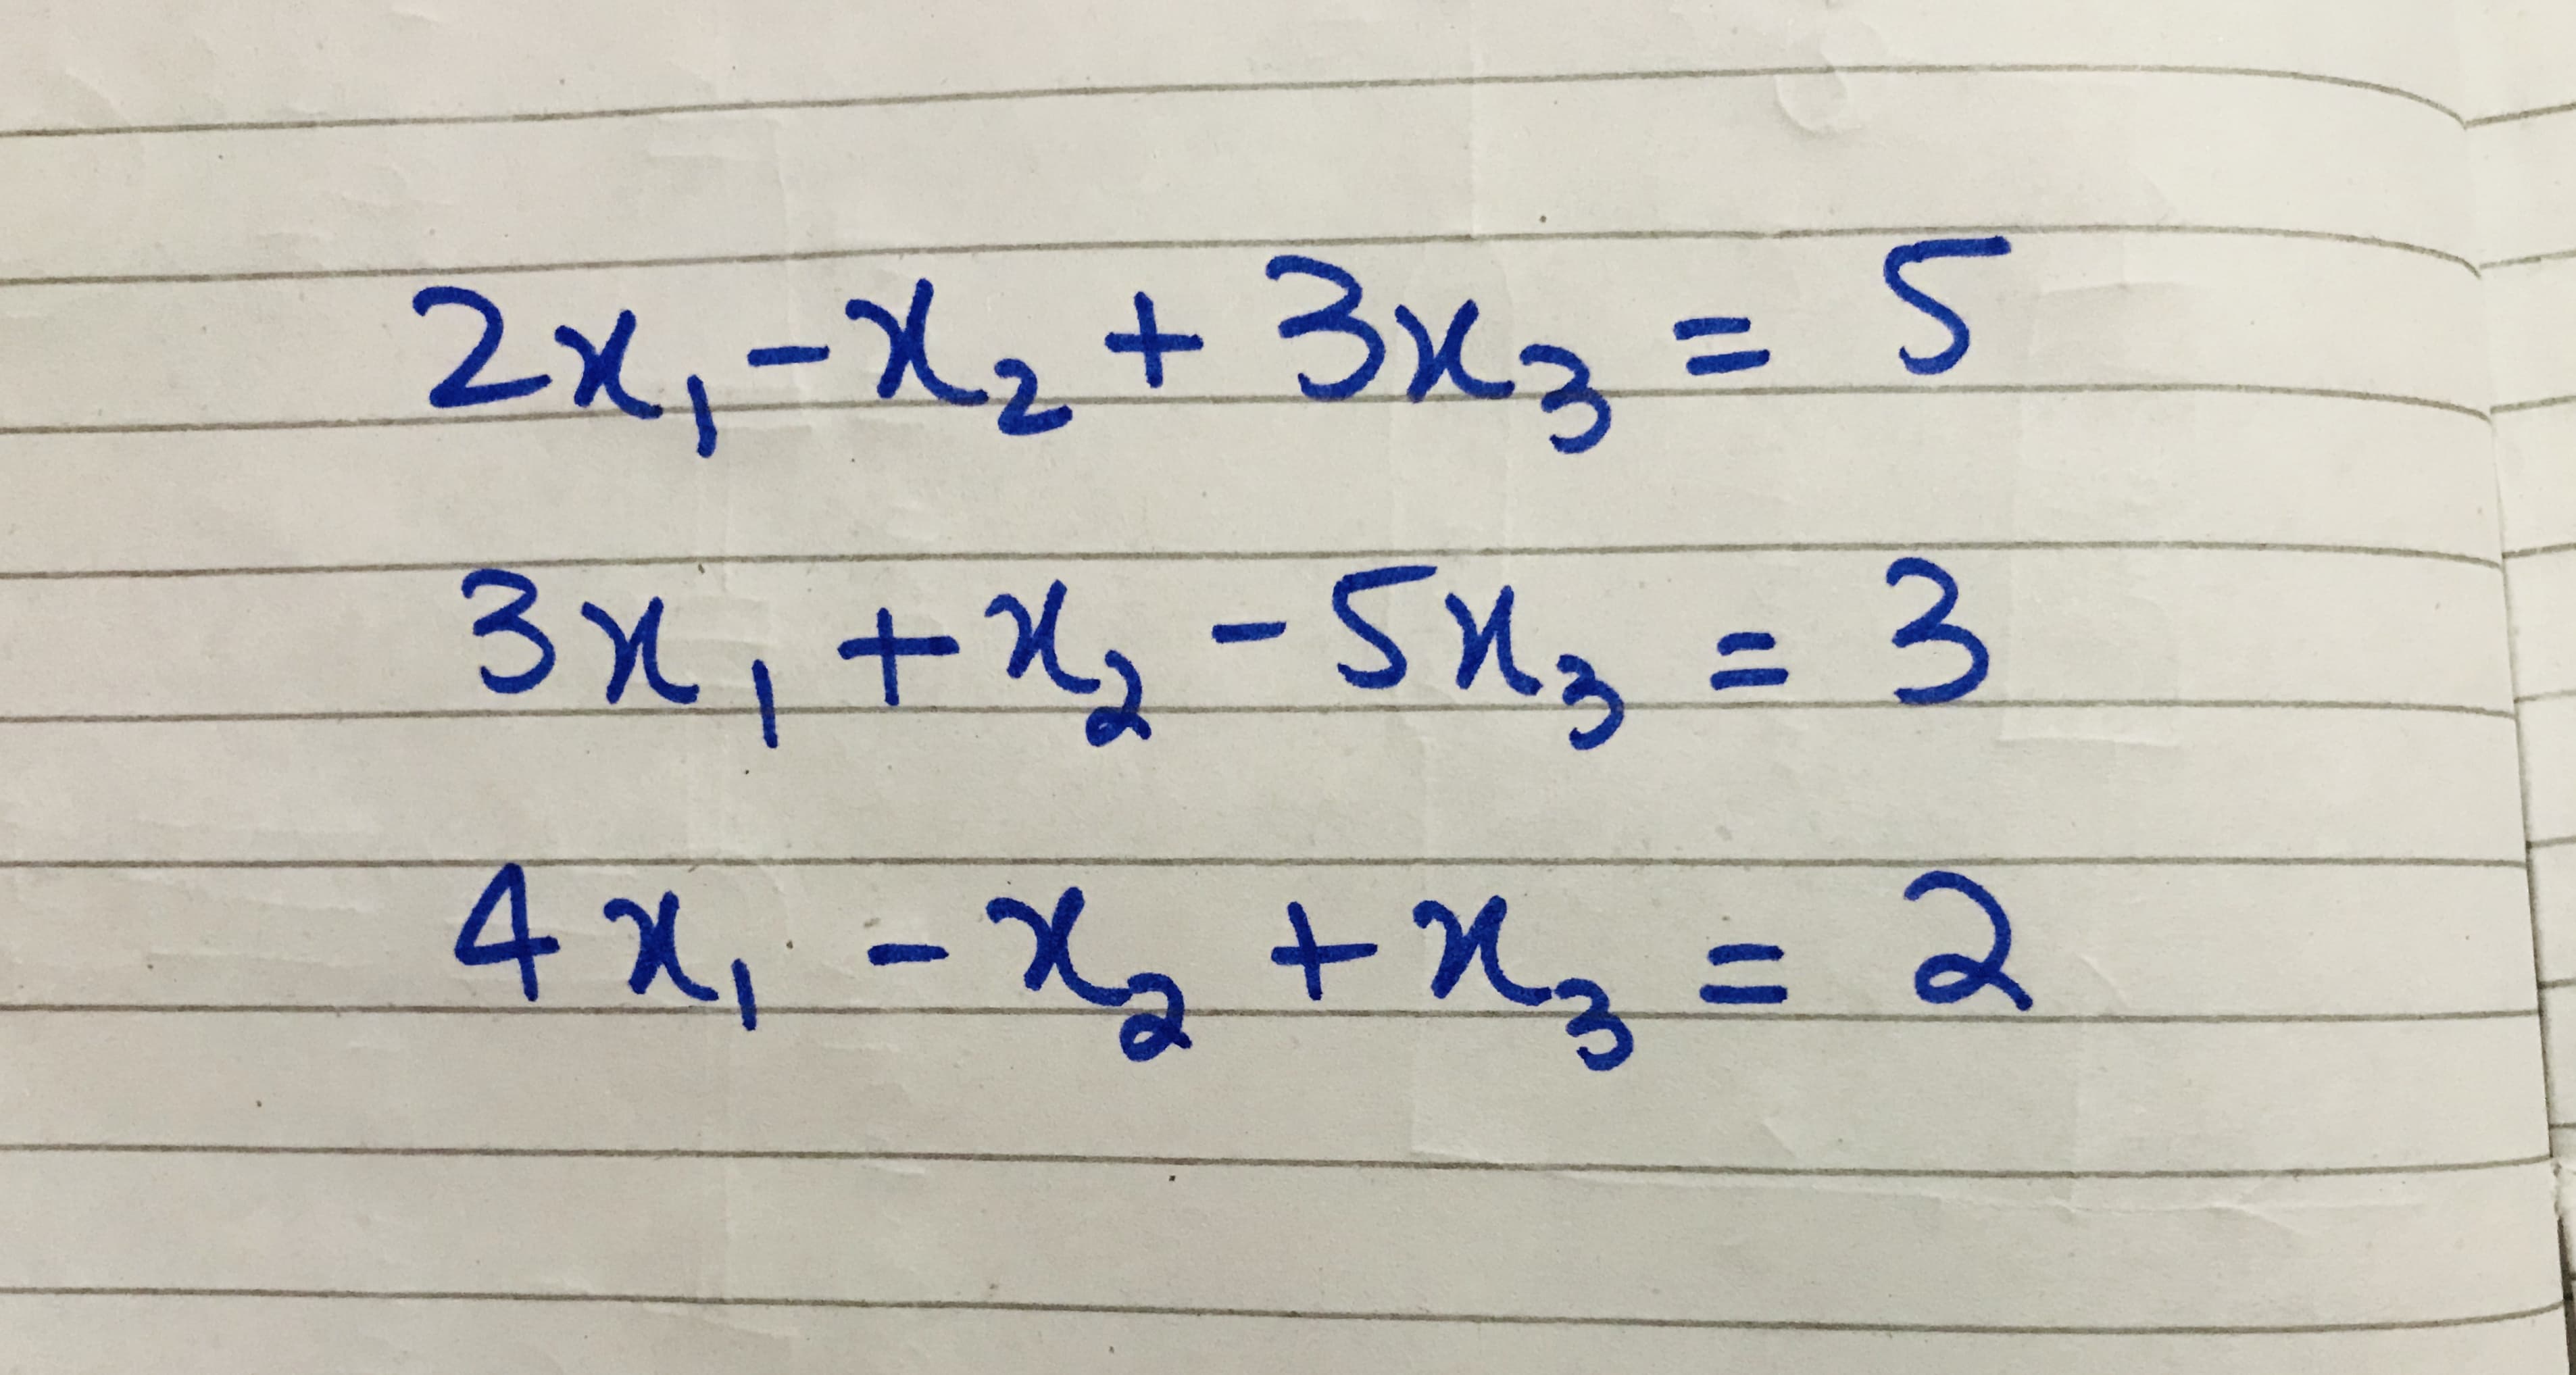 2x₁ - x₂ + 3x₃ = 5
3x₁ + x₂ - 5x₃ = 3
4x₁ - x₂ + x₃ = 2